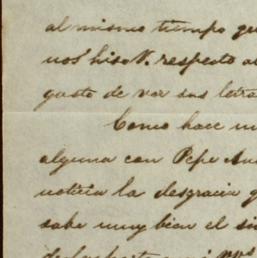 al mismo tiempo que
nos hiso V. respecto a
gusto de ver sus letra
Como hace un
alguna con Pepe
noticia la desgracia
sabe muy bien el si